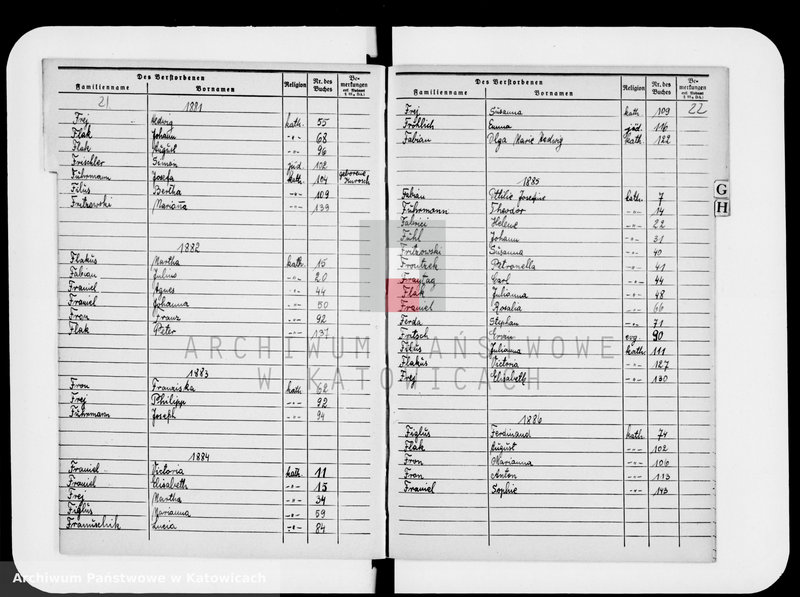 Des Verstorbenen
Familienname Vornamen Religion Nr. des Buches Bemerkungen
21
1881
Frej Hedwig kath. 55
Flak Johann -"- 68
Flak August -"- 96
Frischler Simon jüd. 102
Fuhrmann Josefa kath. 104 geborene
Filus Bertha -"- 109
Fritzowski Marianna -"- 139
1882
Flakus Martha kath. 15
Fabian Julius -"- 20
Framel Agnes -"- 44
Framel Johanna -"- 50
Fron Franz -"- 92
Flak Peter -"- 137
1883
Fron Franziska kath. 62
Frej Philipp -"- 92
Fuhrmann Joseph -"- 94
1884
Framel Victoria kath. 11
Framel Elisabeth -"- 15
Frej Martha -"- 34
Figlus Marianna -"- 59
Franuschik Lucia -"- 84
Des Verstorbenen
Familienname Vornamen Religion Nr. des Buches Bemerkungen
22
Frej Susanna kath. 109
Fröhlich Emma jüd. 116
Fabian Olga Marie Hedwig kath. 122
1885
Fabian Ottilie Josefine kath. 7
Fuhrmann Theodor -"- 14
Fabrici Helene -"- 22
Fuhl Johann -"- 31
Fritzowski Susanna -"- 40
Frontzek Petronella -"- 41
Fraytag Carl -"- 44
Flak Julianna -"- 48
Framel Rosalia -"- 66
Ferda Stephan -"- 71
Fritsch Erwin evg. 90
Filus Julianna kath. 111
Flakus Victoria -"- 127
Frej Elisabeth -"- 130
1886
Figlus Ferdinand kath. 74
Flak August -"- 102
Fron Marianna -"- 106
Fron Anton -"- 113
Framel Sophie -"- 143
G
H
ARCHIWUM PAŃSTWOWE
W KATOWICACH
Archiwum Państwowe w Katowicach